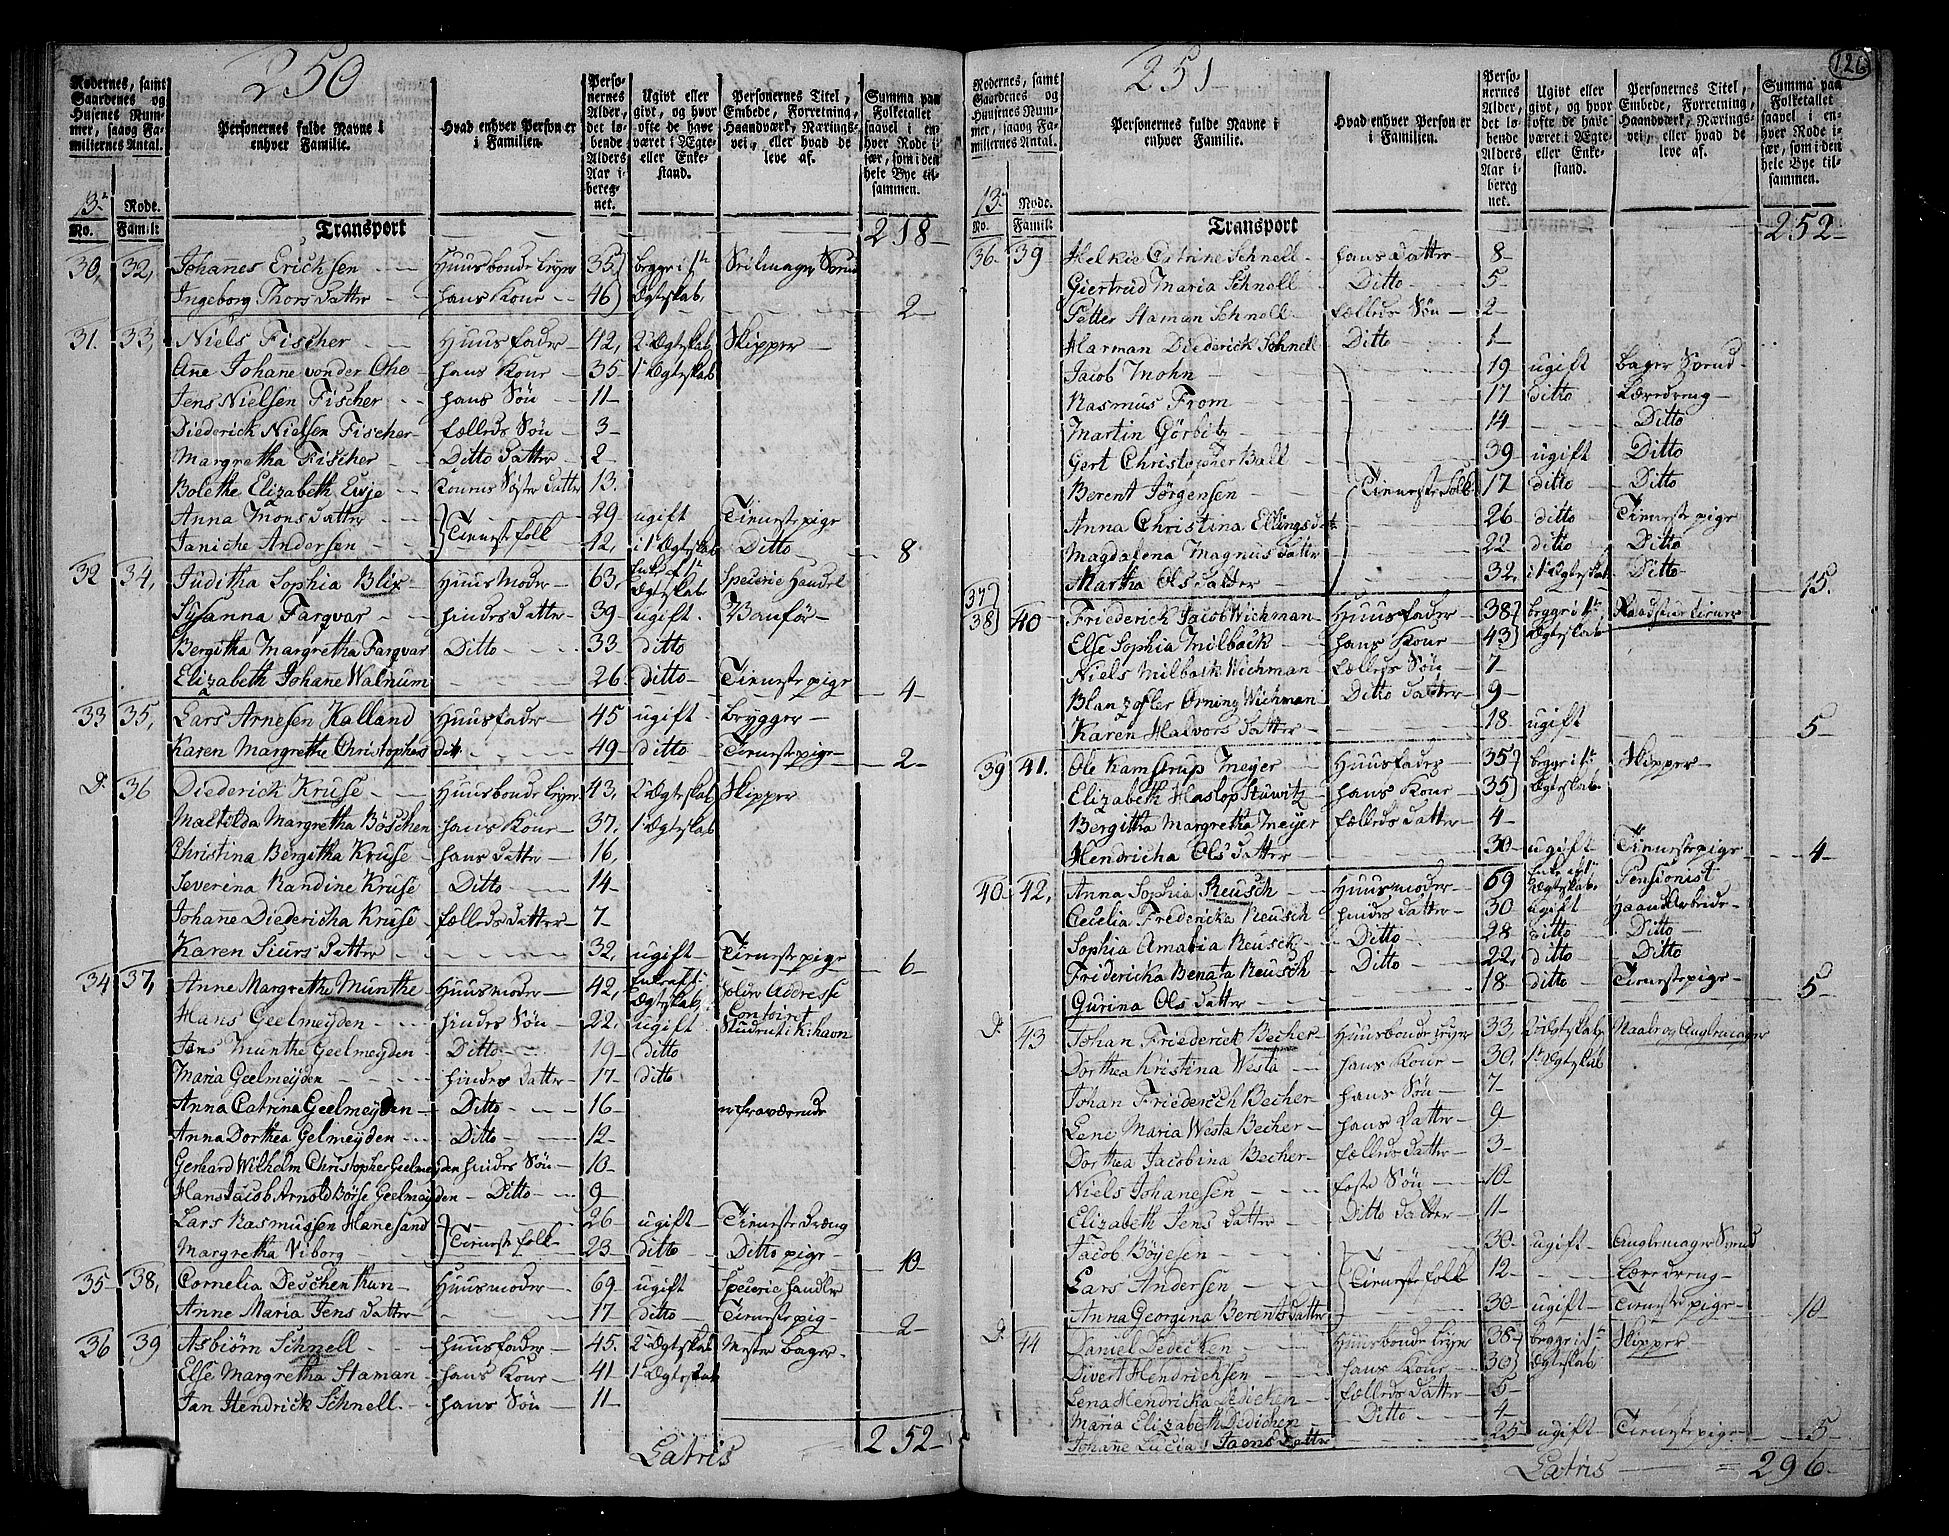 250
Rodernes, samt Gaardenes og Husenes Nummer, saavog Familiernes Antal.
Personernes fulde Navne i enhver Familie.
Hvad enhver Person er i Familien.
Personernes Alder, det løbende Alders Aar iberegnet.
Ugivt eller givt, og hvor ofte de have været i Ægte- eller Enkestand.
Personernes Titel, Embede, Forretning, Haandværk, Næringsvei, eller hvad de leve af.
Summa paa Folketallet saavel i enhver Rode især, som i den hele Bye tilsammen.
13. Rode.
No. Famil: Transport 218
30, 32, Johannes Ericksen Huusbonde Leyer 35 begge i 1te Seilmager Svend
Ingeborg Thors datter hans Kone 46 Ægteskab. 2
31. 33, Niels Fischer Huusfader 42, 2 Ægteskab Skipper
Ane Johane von der Ohe hans Kone 35 1 Ægteskab
Jens Nielsen Fischer hans Søn 11
Diederick Nielsen Fischer fælleds Søn 3
Margretha Fischer Ditto datter 2
Bolethe Elizabeth Eisje Konens Søster datter 13.
Anna Mons datter 29 ugift Tienestepige
Janiche Andersen Tienestefolk 42, i 1 Ægteskab Ditto 8
32 34, Juditha Sophia Blix Huusmoder 63, Enke af 1te Ægteskab Specerie Handel
Susanna Farqvar hindes datter 39 ugift
Bergitha Margretha Farqvar Ditto 33 ditto
Elizabeth Johane Walnum 26 ditto Tienestepige 4
33 35, Lars Arnesen Kalland Huusfader 45 ugift Brygger
Karen Margrethe Christophersdtr 49 ditto Tienestepige 2
D. 36 Diederick Kruse Huusbonde Leyer 43, 2 Ægteskab Skipper
Maltilda Margretha Böschen hans Kone 37. 1 Ægteskab
Christina Bergitha Kruse hans datter 16,
Severina Randine Kruse Ditto 14
Johane Diedericha Kruse fælleds datter 7
Karen Siurs datter 32, ugift Tienestepige 6
34 37, Anne Margrethe Munthe Huusmoder 42, Enke af 1 Ægteskab Addresse Contoiret
Hans Geelmeyden hindes Søn 22, ugift Student i K:havn
Jens Munthe Geelmeyden Ditto 19 ditto
Maria Geelmeyden hindes datter 17 ditto
Anna Catrina Geelmeyden Ditto 16 er fraværende
Anna Dorthea Gelmeyden Ditto 12
Gerhard Wilholm Christopher Geelmeyden hindes Søn 10
Hans Jacob Arnold Börse Geelmeyden Ditto 9
Lars Rasmussen Hanesand 26 ugift Tieneste dreng
Margretha Viborg Tienestefolk 23 ditto Ditto pige 10
35 38, Cornelia Deschenthun Huusmoder 69 ugift Specerie handler
Anne Maria Jens datter 17 ditto Tienestepig 2
36 39 Asbiørn Schnell huusfader 45. 2 Ægteskab Mester bager
Else Margretha Haman hans Kone 41 1 Ægteskab
Jan Hendrick Schnell hans Søn 11
Latris 252
126
251
Rodernes, samt Gaardenes og Husenes Nummer, saavog Familiernes Antal.
Personernes fulde Navne i enhver Familie.
Hvad enhver Person er i Familien.
Personernes Alder, det løbende Alders Aar iberegnet.
Ugivt eller givt, og hvor ofte de have været i Ægte- eller Enkestand.
Personernes Titel, Embede, Forretning, Haandværk, Næringsvei, eller hvad de leve af.
Summa paa Folketallet saavel i enhver Rode især, som i den hele Bye tilsammen.
13. Rode.
No. Famil: Transport 252
36. 39 Helkie Catrine Schnell hans datter 8
Giertrud Maria Schnell Ditto 5
Petter Haman Schnell fælleds Søn 2
Harman Diederick Schnell Ditto 1
Jacob Mohn 19 ugift bager Svend
Rasmus From 17 ditto Læredreng
Martin Görbitz 14 Ditto
Gert Christopher Ball 39 ugift Ditto
Berent Jørgensen Tienestefolk 17 ditto Ditto
Anna Christina Ellingsdatr 26 ditto Tienestepige
Magdalena Magnus datter 22 ditto Ditto
Martha Ols datter 32, i 1 Ægteskab Ditto 15.
37
38 40 Friederick Jacob Wichman Huusfader 38 begge i 1te Raadstue tiener
Else Sophia Milback hans Kone 43 Ægteskab
Niels Milback Wichman fælleds Søn 7
Blanzefler Örning Wichman Ditto datter 9
Karen Halvors datter 18 ugift 5
39 41. Ole Kamstrup Meyer Huusfader 35 begge i 1te Skipper
Elizabeth Haslop Stuwitz hans Kone 35 Ægteskab
Bergitha Margretha Meyer fælleds datter 4
Hendricha Ols datter 30 ugift Tienestepige 4
40 42, Anna Sophia Reusch Huusmoder 69 Enke af 1te Ægteskab Pensionist
Cecilia Fredericka Reusch hindes datter 30 ugift haandArbeide
Sophia Amalia Reusch Ditto 28 ditto Ditto
Fridericka Benata Reusch Ditto 22, ditto Ditto
Gurina Ols datter 18 ditto Tienestepige 5
D. 43 Johan Friederick Becher Huusbonde Leyer 33 2 Ægteskab
Dorthea Kristina Westa hans Kone 30. 1te Ægteskab
Johan Friederich Becher hans Søn 7
Lene Maria Westa Becher hans datter 9
Dorthea Jacobina Becher fælleds datter 3
Niels Johanesen foste Søn 10
Elizabeth Jens datter Ditto datter 11
Jacob Böyesen 30. ugift Svend
Lars Andersen Tienestefolk 12 Læredreng
Anna Georgina Berents datter 30 ugift Tienestepige 10
D. 44 Daniel Dedicken Huusbonde Leyer 38 begge i 1te Skipper
Divert Hendricksen hans Kone 30 Ægteskab
Lena Hendricka Dedicken fælleds datter 5
Maria Elizabeth Dedichen Ditto 4
Johane Lucia Jaens datter 25 ugift Tienestepige 5
Latris 296